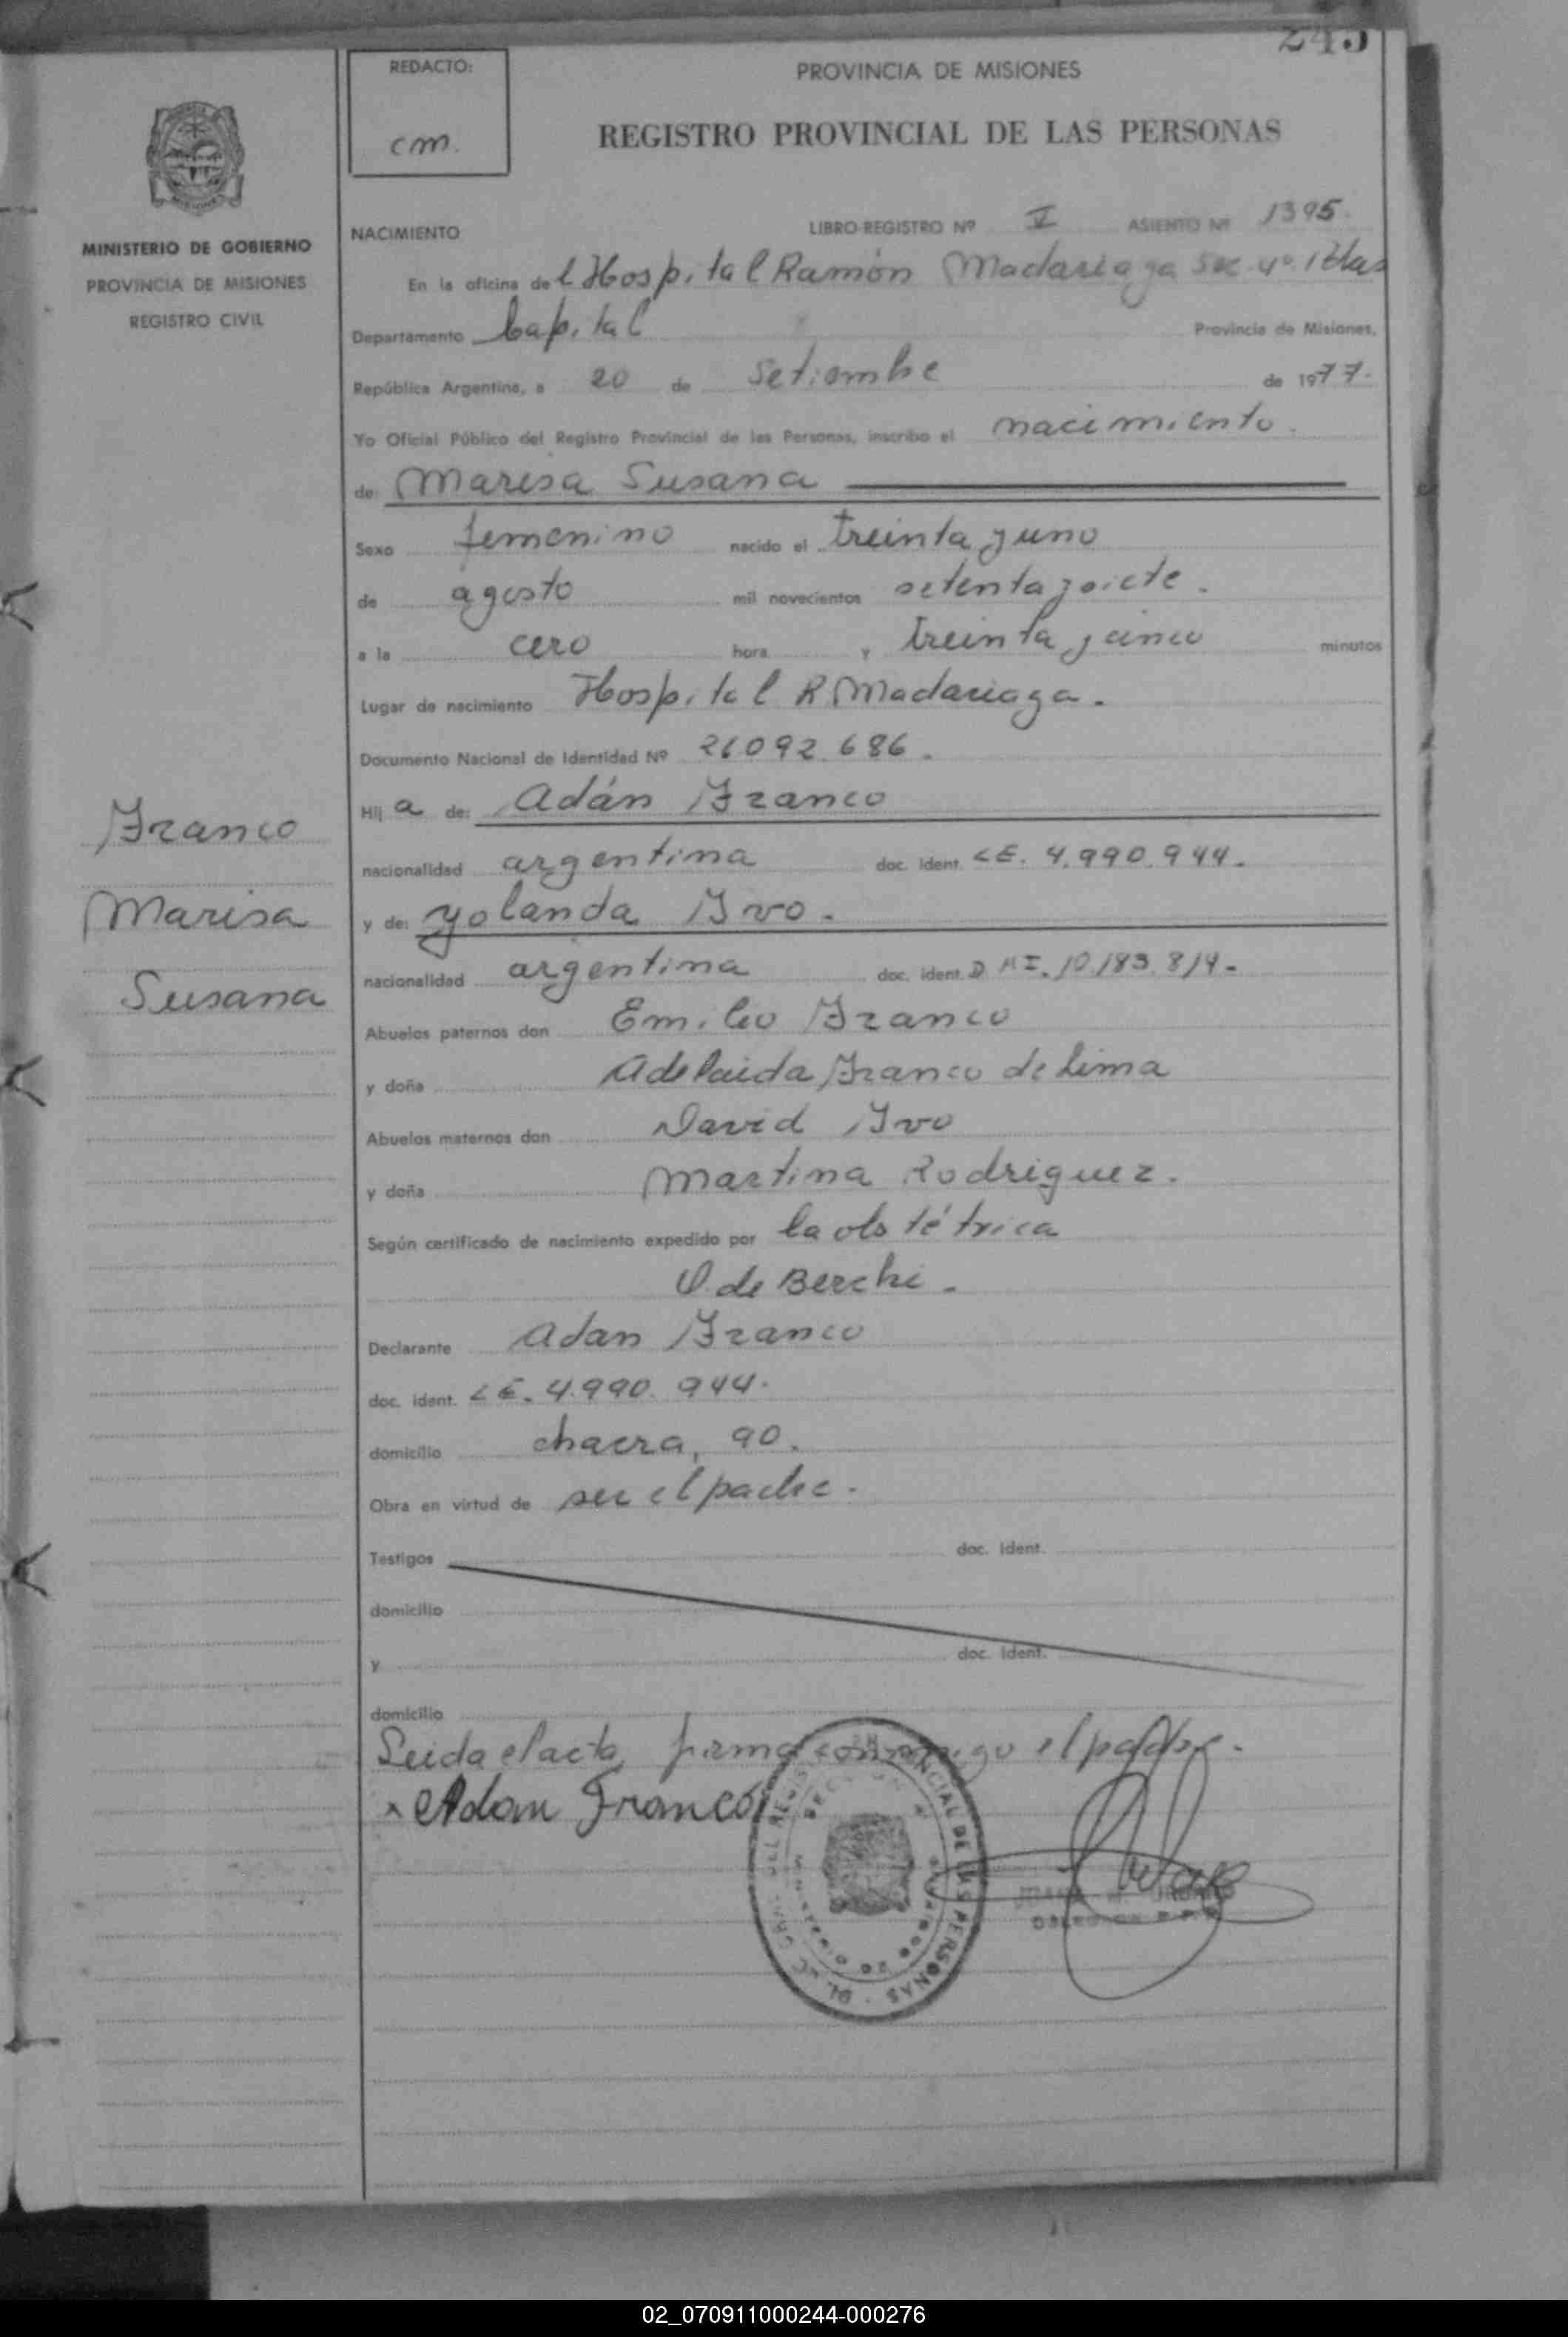 245
REDACTO:
cm.
PROVINCIA DE MISIONES
REGISTRO PROVINCIAL DE LAS PERSONAS
MINISTERIO DE GOBIERNO
PROVINCIA DE MISIONES
REGISTRO CIVIL
NACIMIENTO LIBRO REGISTRO Nº V ASIENTO Nº 1395.
En la oficina del Hospital Ramón Madariaga Sec 4º
Departamento Capital Provincia de Misiones,
República Argentina, a 20 de Setiembre de 1977.
Yo Oficial Público del Registro Provincial de las Personas, inscribo el nacimiento.
de: Marisa Susana
Sexo femenino nacido el treinta y uno
de agosto mil novecientos setenta y siete.
a la cero hora y treinta y cinco minutos
Lugar de nacimiento Hospital R Madariaga.
Documento Nacional de Identidad Nº 26092.686.
Hij a de: Adán Franco
nacionalidad argentina doc. ident. LE. 4.990.944.
y de: Yolanda Ivo.
nacionalidad argentina doc. ident. D.N.I. 10.183.814.
Abuelos paternos don Emilio Franco
y doña Adelaida Franco de Lima
Abuelos maternos don David Ivo
y doña Martina Rodriguez.
Según certificado de nacimiento expedido por la obstétrica
O. de Berchi.
Declarante Adan Franco
doc. ident. LE. 4.990.944.
domicilio chacra, 90.
Obra en virtud de ser el padre.
Testigos doc. ident.
domicilio
y doc. ident.
domicilio
Leida el acta, firma conmigo el padre.
x Adan Franco
Franco
Marisa
Susana
02_070911000244-000276